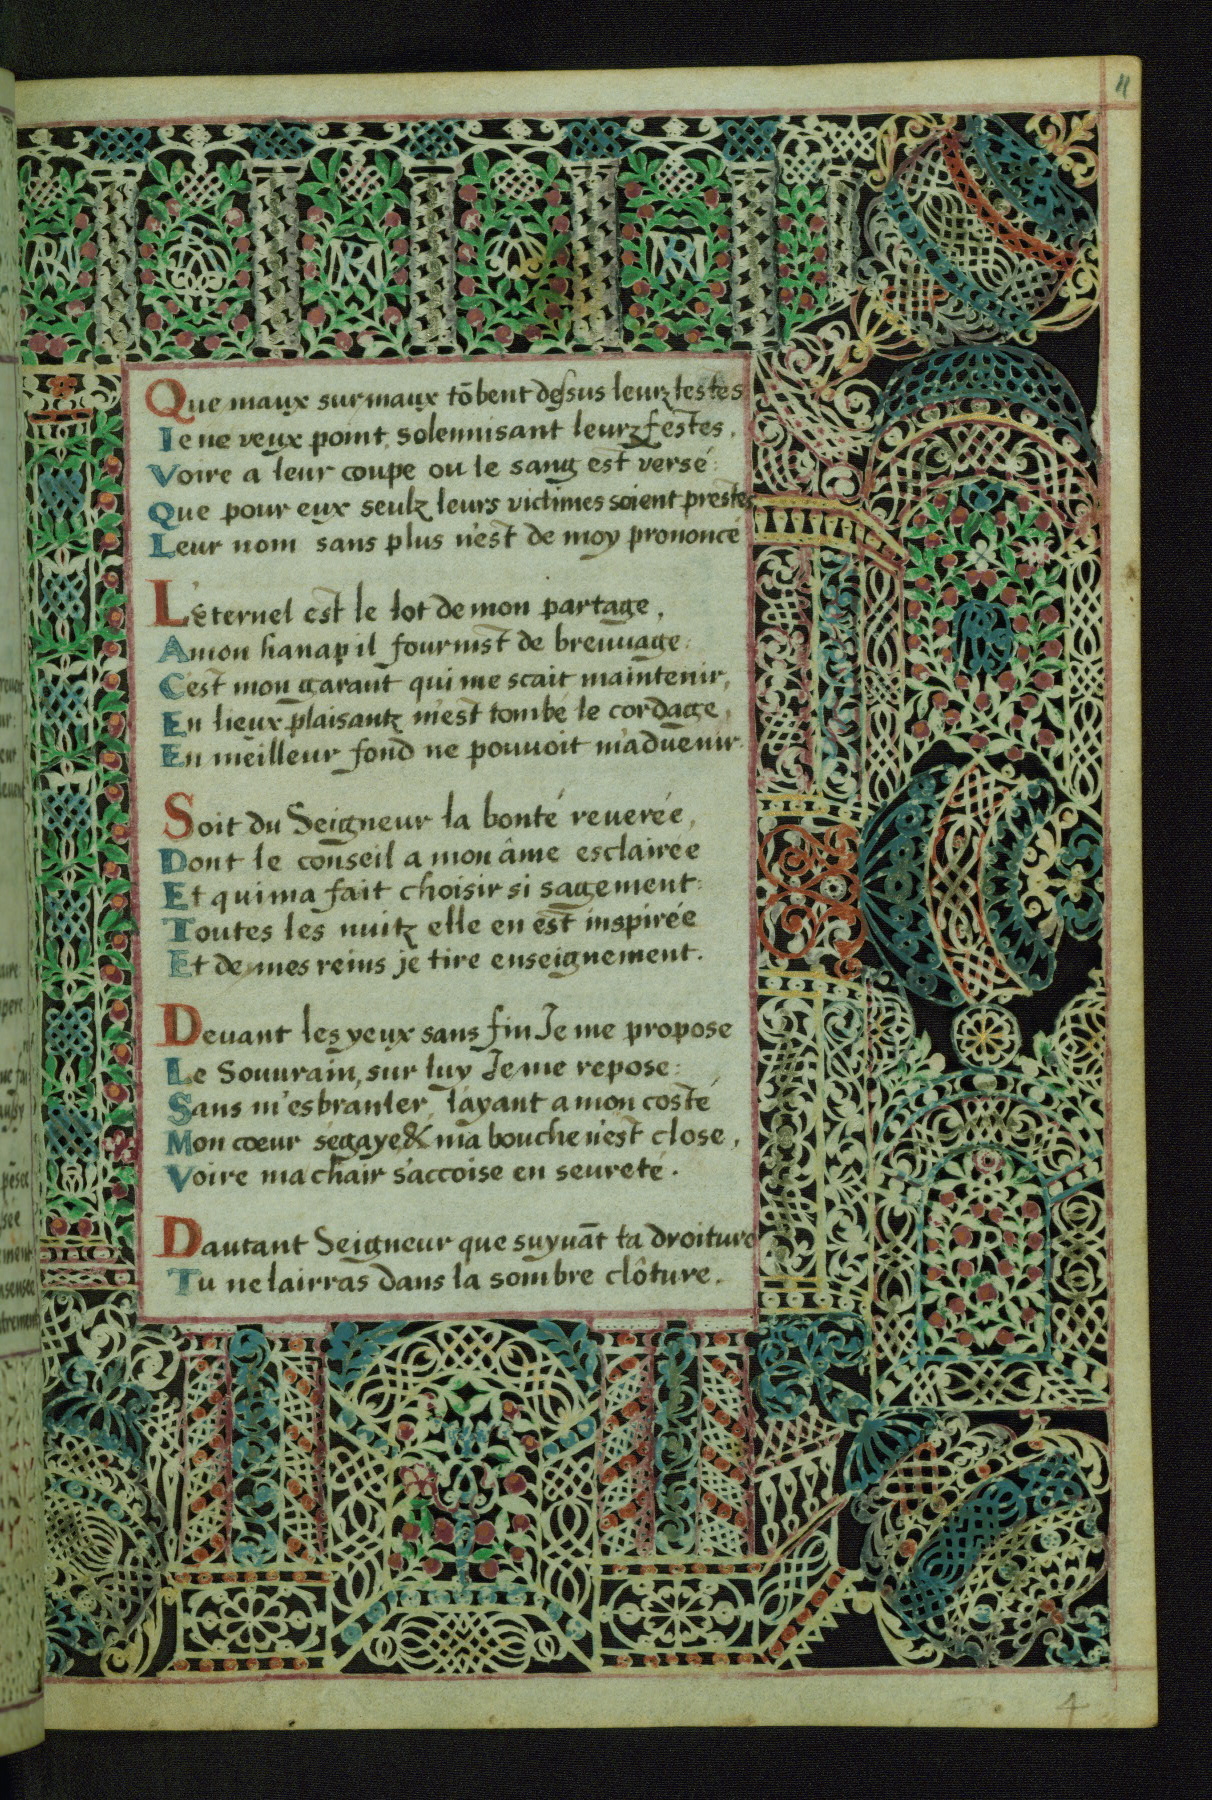 11
Que maux sur maux tōbent dessus leurz testes
Ie ne veux point, solennisant leurz festes,
Voire a leur coupe ou le sang est versé:
Que pour eux seulz leurs victimes soient prestes
Leur nom sans plus n'est de moy prononcé
L'éternel est le lot de mon partage,
A mon hanap il fournist de breuuage:
C'est mon garant qui me scait maintenir,
En lieux plaisantz m'est tombé le cordage,
En meilleur fond ne pouvoit m'aduenir.
Soit du Seigneur la bonté reuerée,
Dont le conseil a mon âme esclairee
Et qui m'a fait choisir si sagement:
Toutes les nuitz elle en est inspirée
Et de mes reins je tire enseignement.
Deuant les yeux sans fin Je me propose
Le Souurain, sur luy Je me repose:
Sans m'esbranler, l'ayant a mon costé
Mon cœur s'égaye & ma bouche n'est close,
Voire ma chair s'accoise en seureté.
Dautant Seigneur que suyuāt ta droiture
Tu ne lairras dans la sombre clôture.
4